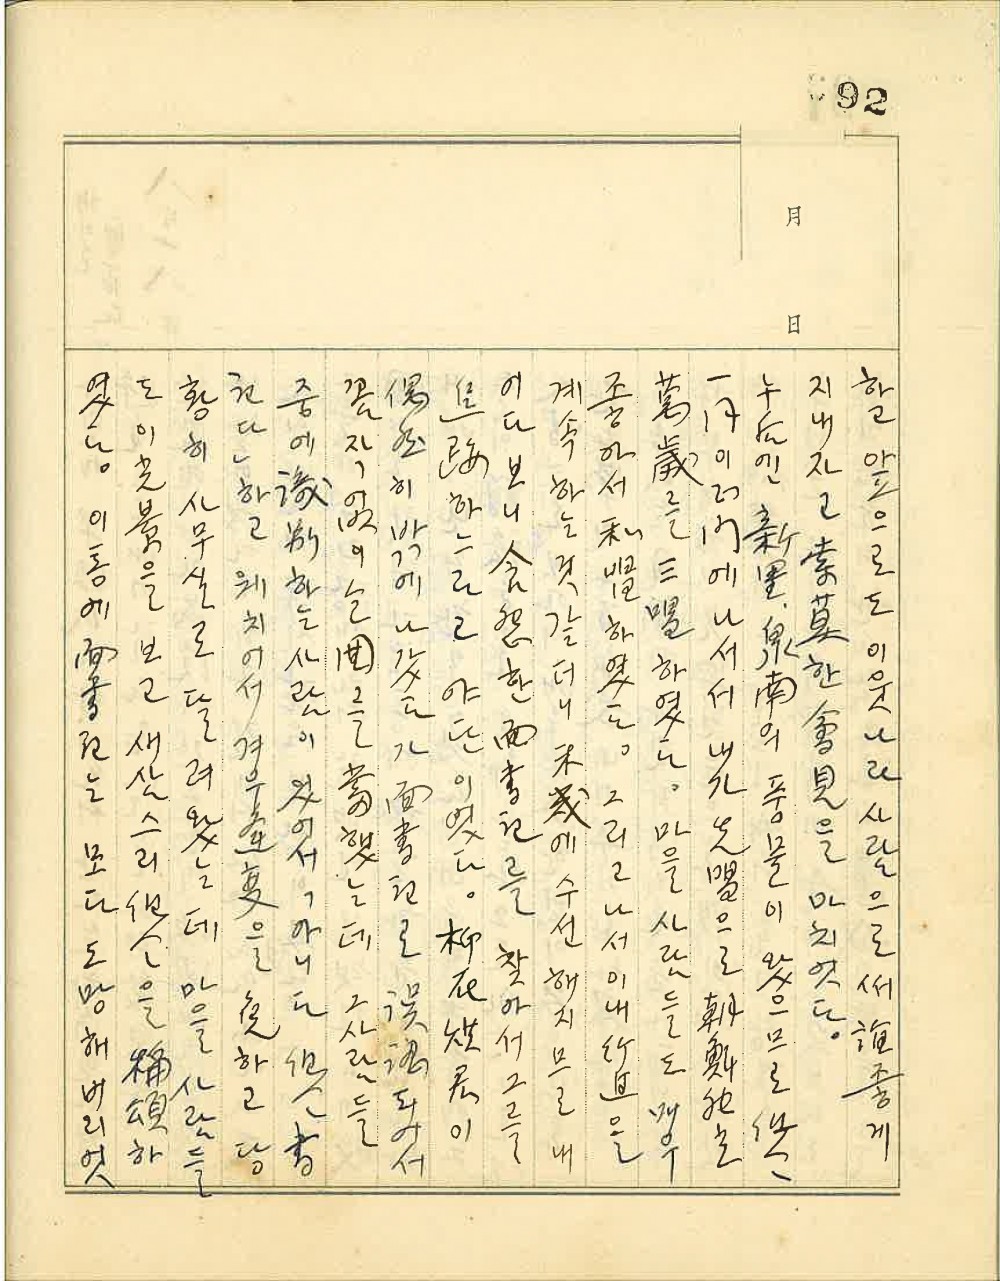 92
月
日
하고 앞으로도 이웃나라 사람으로써 誼좋게
지내자고 索莫한 會見을 마치엇다。
누구언 新里、泉南의 풍물이 왔으므로
一同이 門에 나서서 내가 先唱으로 朝鮮獨立
萬歲를 三唱하였다。 마을 사람들도 매우
좋아서 和唱하였다。 그리고 나서 이내 行進을
계속하는것 같더니 未幾에 수선해지므로 내
어다보니 含怨한 面書記를 찾아서 그를
하느라고 야단이었다。 柳在 君이
偶然히 밖에 나갔다가 面書記로 誤認되어서
꼼짝없이 困를 當했는데 그사람들
중에 識別하는 사람이 있어서、아니다 書
하고 웨치어서 겨우 變을 免하고 당
황히 사무실로 달려왔는데 마을 사람들
도 이 光景을 보고 새삼스리 을 稱頌하
였다。 이통에 面書記는 모다 도망해버리엇